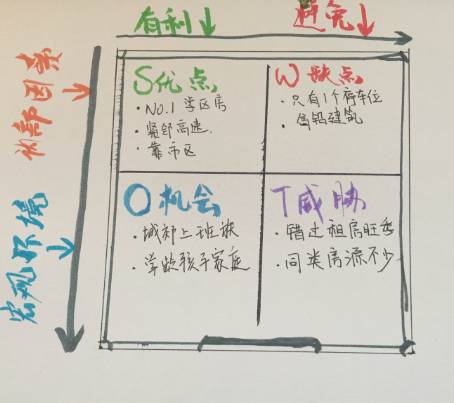 有利
避免
内部因素
宏观环境
S优点
·NO.1 学区房
·紧邻高速
·靠市区
W缺点
·只有1个停车位
建筑
O机会
·城郊上班族
·学龄孩子家庭
T威胁
·错过租房旺季
·同类房源不少